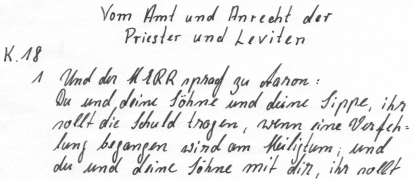 Vom Amt und Anrecht der
Priester und Leviten
K. 18
1 Und der HERR sprach zu Aaron:
Du und deine Söhne und deine Sippe, ihr
sollt die Schuld tragen, wenn eine Verfeh=
lung begangen wird am Heiligtum; und
du und deine Söhne mit dir, ihr sollt